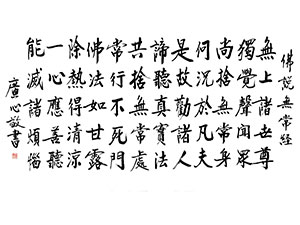 佛說無常經
無上諸世尊
獨覺聲聞眾
尚捨無常身
何況於凡夫
是故勸諸人
諦聽真實法
共捨無常處
常行不死門
佛法如甘露
除熱得清涼
一心應善聽
能滅諸煩惱
廣心敬書